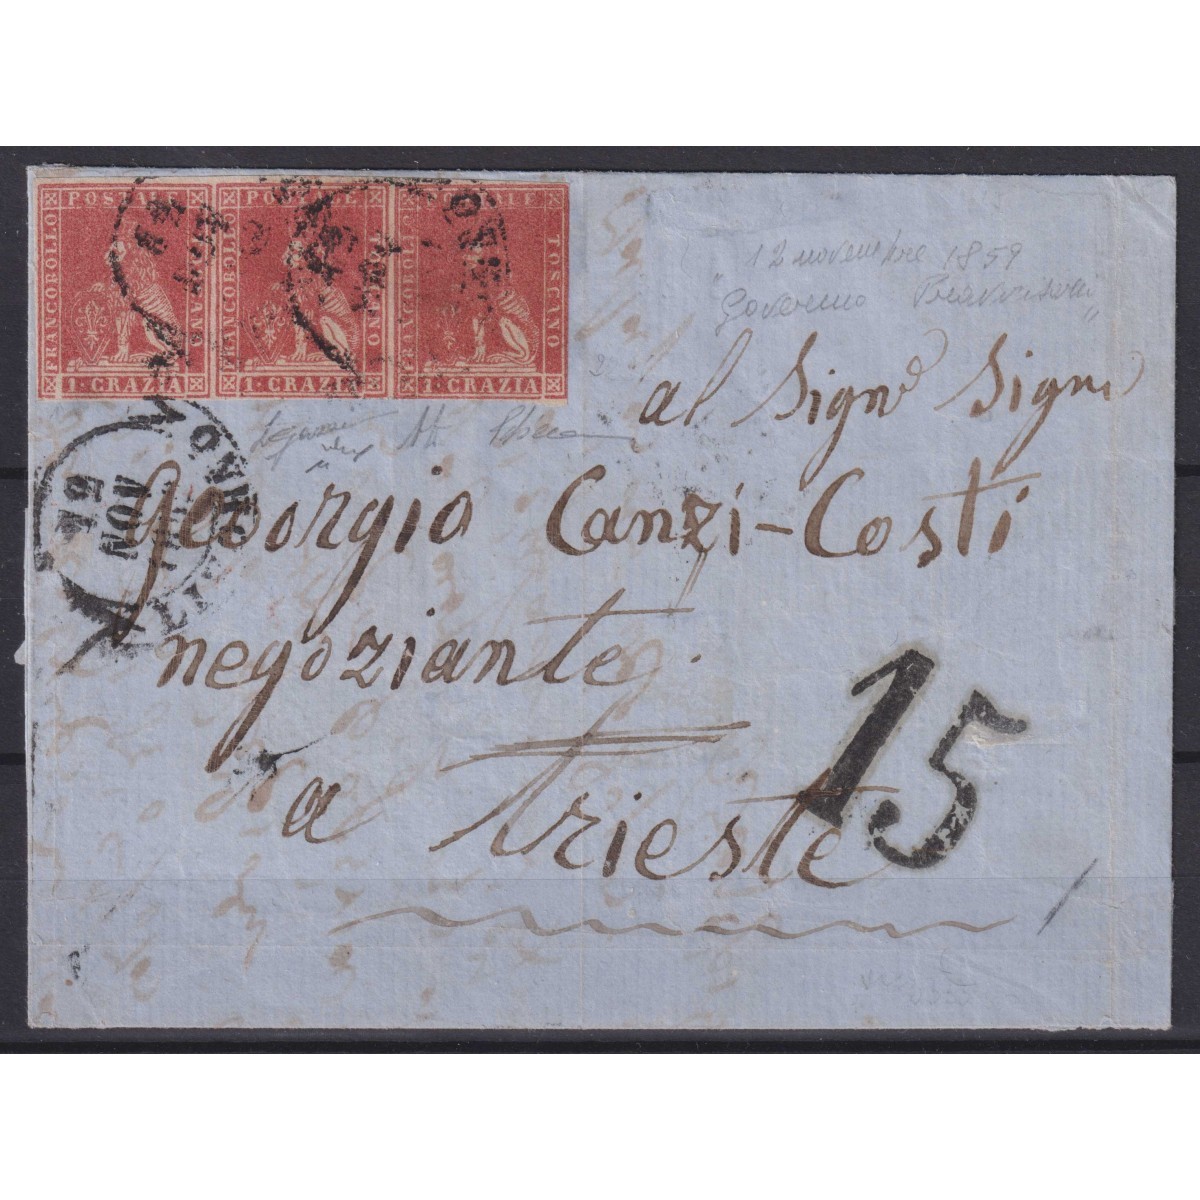 FRANCOBOLLO POSTALE TOSCANO 1 CRAZIA
FRANCOBOLLO POSTALE TOSCANO 1 CRAZIA
FRANCOBOLLO POSTALE TOSCANO 1 CRAZIA
12 novembre 1859
"Governo Provvisorio"
al Signe Signe
Geoorgio Canzi-Costi
negoziante
a Trieste
LIVORNO
12
NOV
1859
15